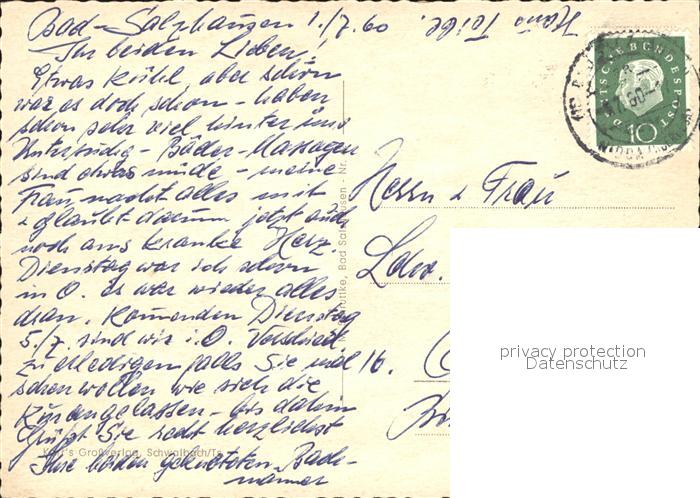 Bad-Salzhausen 1./7. 60.
Ihr beiden Lieben!
Etwas kühl, aber schön
war es doch schon - haben
schon sehr viel hinter uns
- Bäder-Massagen
sind etwas müde - meine
Frau macht alles mit
& glaubt darum jetzt auch
noch ans kranke Herz.
Dienstag war ich schon
in O. es war wieder alles
dran. Kommenden Dienstag
5./7. sind wir i. O.
zu erledigen falls Sie mal
sehen wollen wie sich die
Kur angelassen - bis dahin
Grüßt Sie recht herzlichst
Ihre beiden Bade-
männer
Hans
DEUTSCHE BUNDESPOST
10
NIDDA
Herrn & Frau
16.
Bad Salzhausen · Nr.
Kurt's Großverlag, Schwalbach/Ts.
privacy protection
Datenschutz